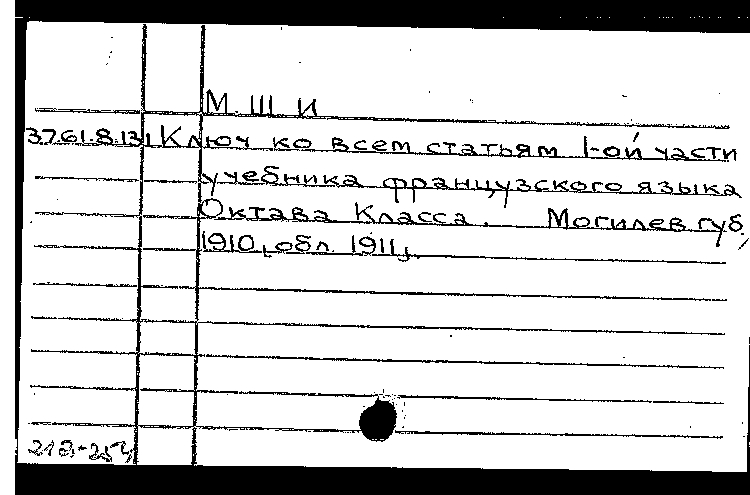 М. Ш. И
37.61.8.131 Ключ ко всем статьям 1-ой части
учебника французского языка
Октава Класса. Могилев губ,
1910 [обл. 1911].